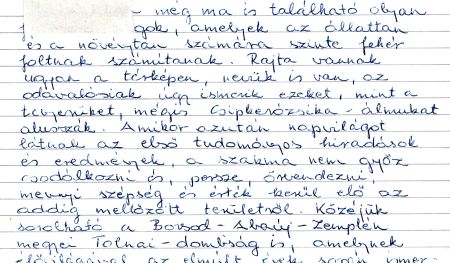 - még ma is található olyan
gok, amelyek az állattan
és a növénytan számára szinte fehér
foltnak számítanak. Rajta vannak
ugyan a térképen, nevük is van, az
odavalósiak úgy ismerik ezeket, mint a
tenyerüket, mégis Csipkerózsika-álmukat
alusszák. Amikor azután napvilágot
látnak az első tudományos híradások
és eredmények, a szakma nem győz
csodálkozni és, persze, örvendezni,
mennyi szépség és érték kerül elő az
addig mellőzött területről. Közéjük
sorolható a Borsod-Abaúj-Zemplén
megyei Tolnai-dombság is, amelynek
élővilágával az elmúlt évek során ismer-